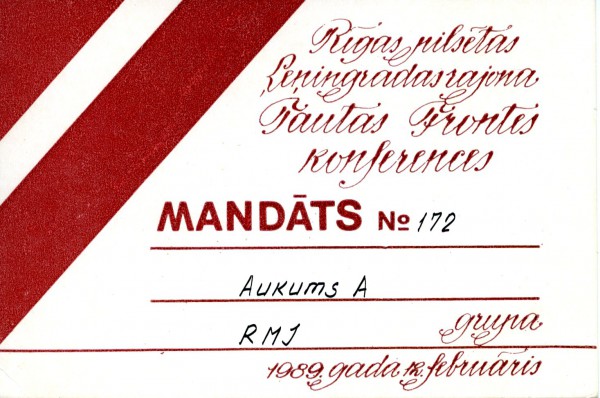 Rīgas pilsētas
Ļeņingradas rajona
Tautas Frontes
konferences
MANDĀTS № 172
Aukums A
RMJ grupa
1989. gada 12. februāris